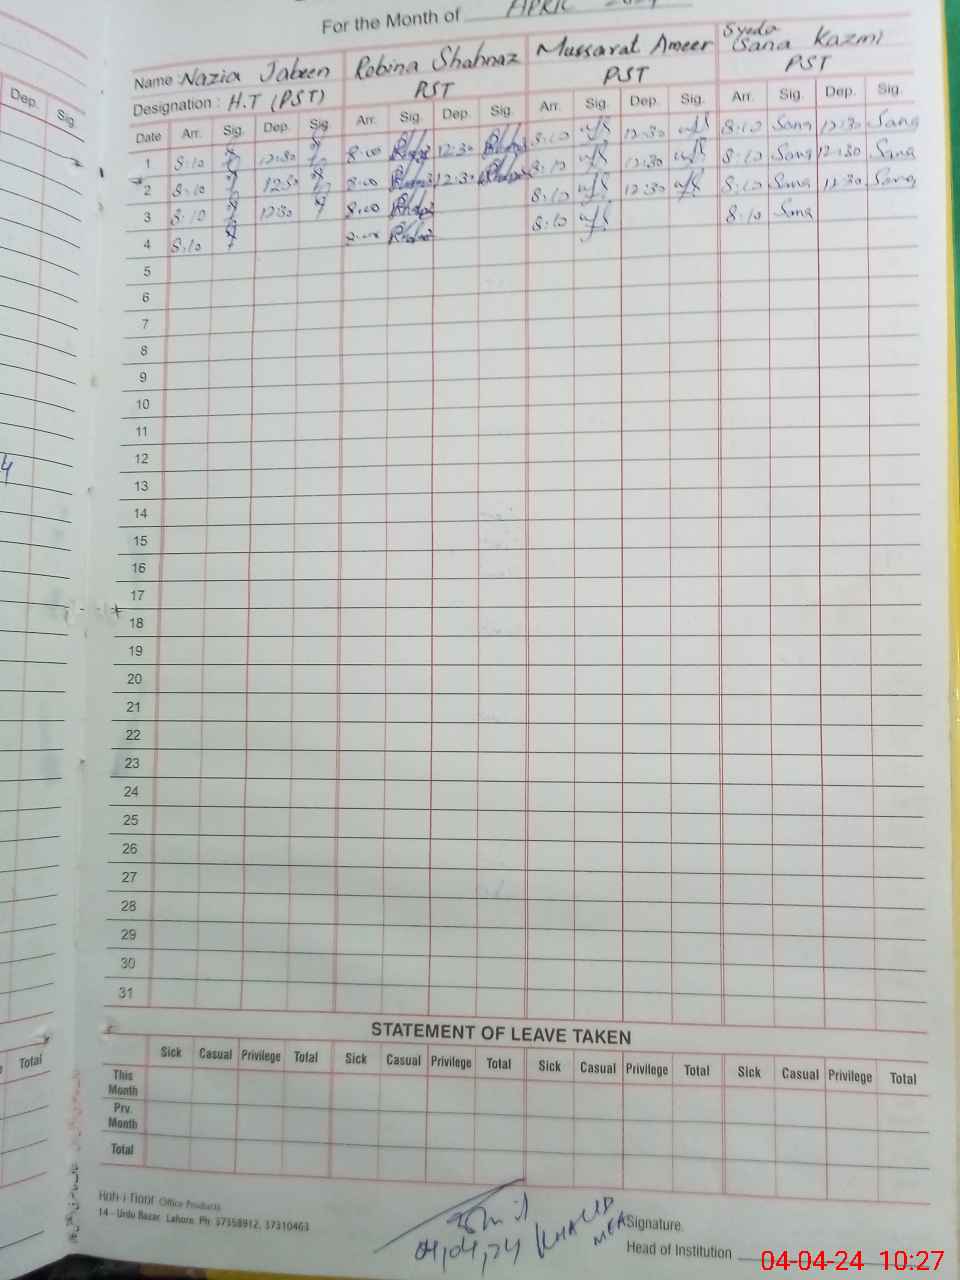 For the Month of APRIL 2024
Name: Nazia Jabeen Robina Shahnaz Mussarat Ameer Syeda Sana Kazmi
Designation: H.T (PST) PST PST PST
Dep. Sig.
Date Arr. Sig. Dep. Sig. Arr. Sig. Dep. Sig. Arr. Sig. Dep. Sig. Arr. Sig. Dep. Sig.
1 8:10 12:30 8:00 12:30 8:10 12:30 8:10 Sana 12:30 Sana
2 8:10 12:30 8:00 12:30 8:10 12:30 8:10 Sana 12:30 Sana
3 8:10 12:30 8:00 8:10 12:30 8:10 Sana 12:30 Sana
4 8:10 8:00 8:10 8:10 Sana
5
6
7
8
9
10
11
12
13
14
15
16
17
18
19
20
21
22
23
24
25
26
27
28
29
30
31
STATEMENT OF LEAVE TAKEN
Total
Sick Casual Privilege Total Sick Casual Privilege Total Sick Casual Privilege Total Sick Casual Privilege Total
This Month
Prv. Month
Total
Office Products
14 - Urdu Bazar, Lahore. Ph: 37358912, 37310463
04,04,24 KHALID MEA
Signature
Head of Institution
04-04-24 10:27